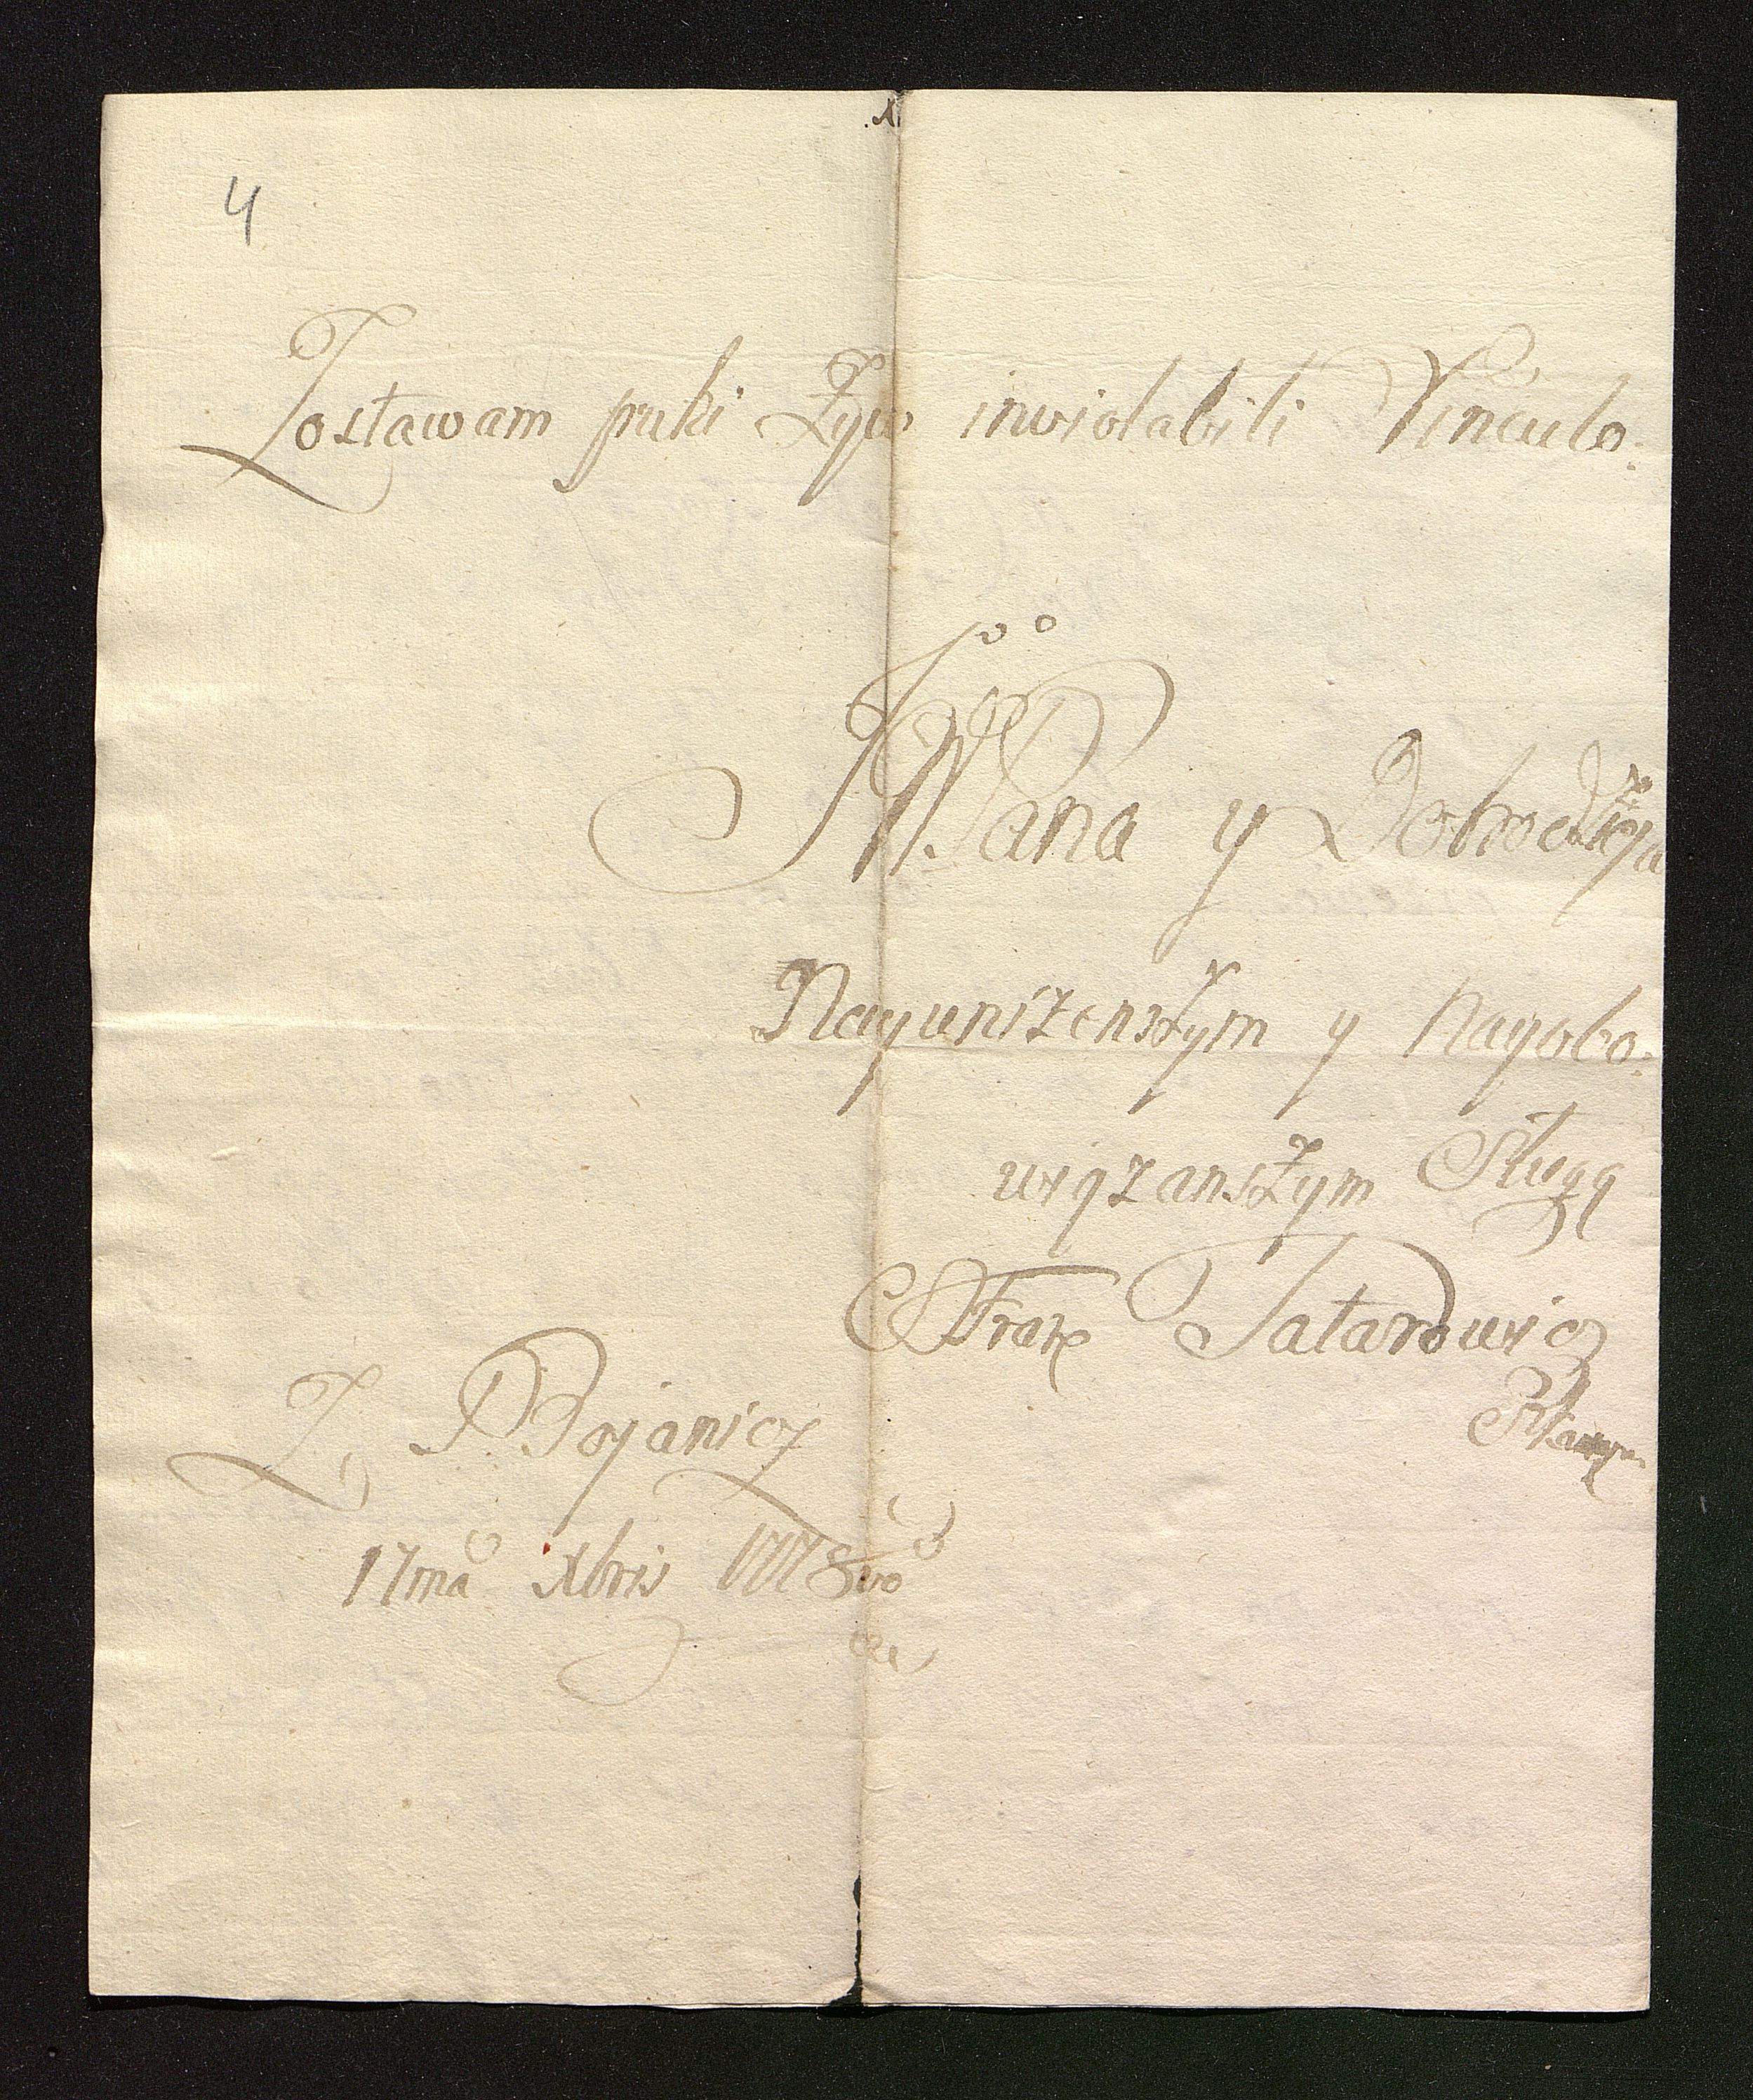 4
Zostawam puki Żyw inviolabili Vinculo:
JW Pana y Dobrodzieja
Nayuniżenszym y Nayobo:
wiązanszym Sługą
Fran Tatarowicz
Z Bojanicz
17ma Xbris 1778vo